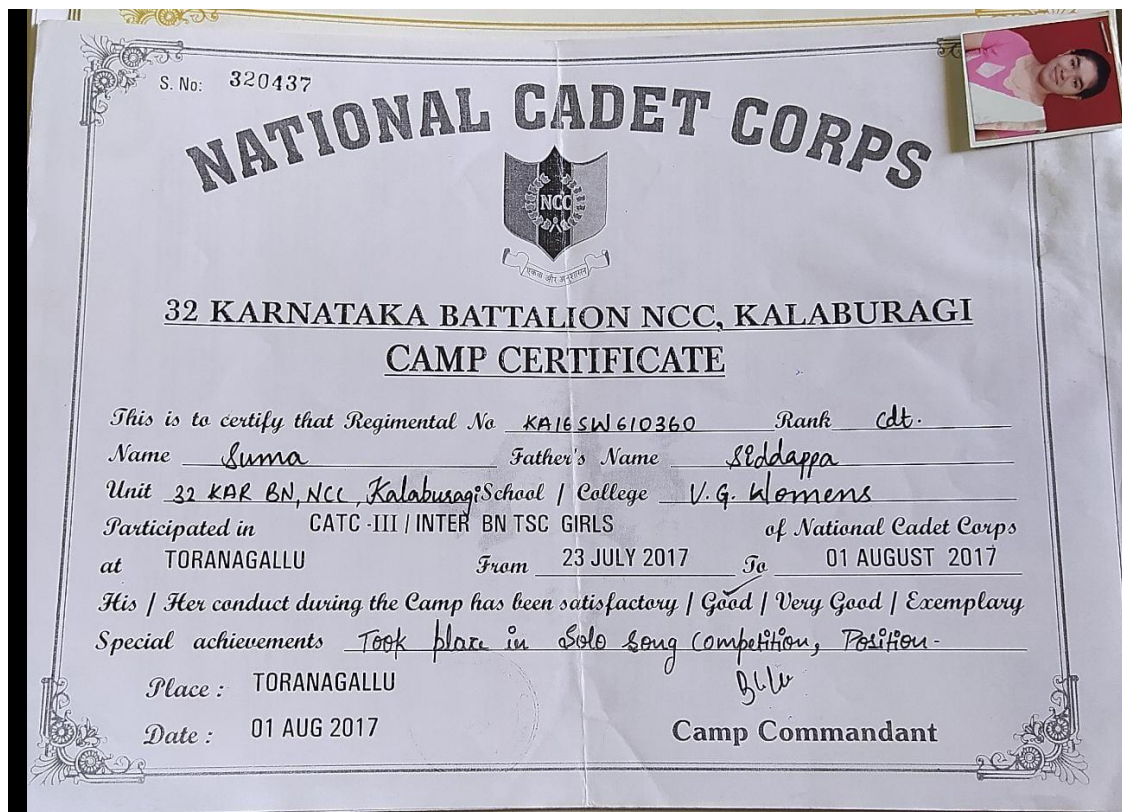 S. No: 320437
NATIONAL CADET CORPS
NCC
एकता और अनुशासन
32 KARNATAKA BATTALION NCC, KALABURAGI
CAMP CERTIFICATE
This is to certify that Regimental No KA16SW610360 Rank Cdt.
Name Suma Father's Name Siddappa
Unit 32 KAR BN, NCC, Kalaburagi School / College V.G. Womens
Participated in CATC -III / INTER BN TSC GIRLS of National Cadet Corps
at TORANAGALLU From 23 JULY 2017 To 01 AUGUST 2017
His / Her conduct during the Camp has been satisfactory / Good / Very Good / Exemplary
Special achievements Took place in Solo Song Competition, Position -
Place : TORANAGALLU
Date : 01 AUG 2017
Camp Commandant